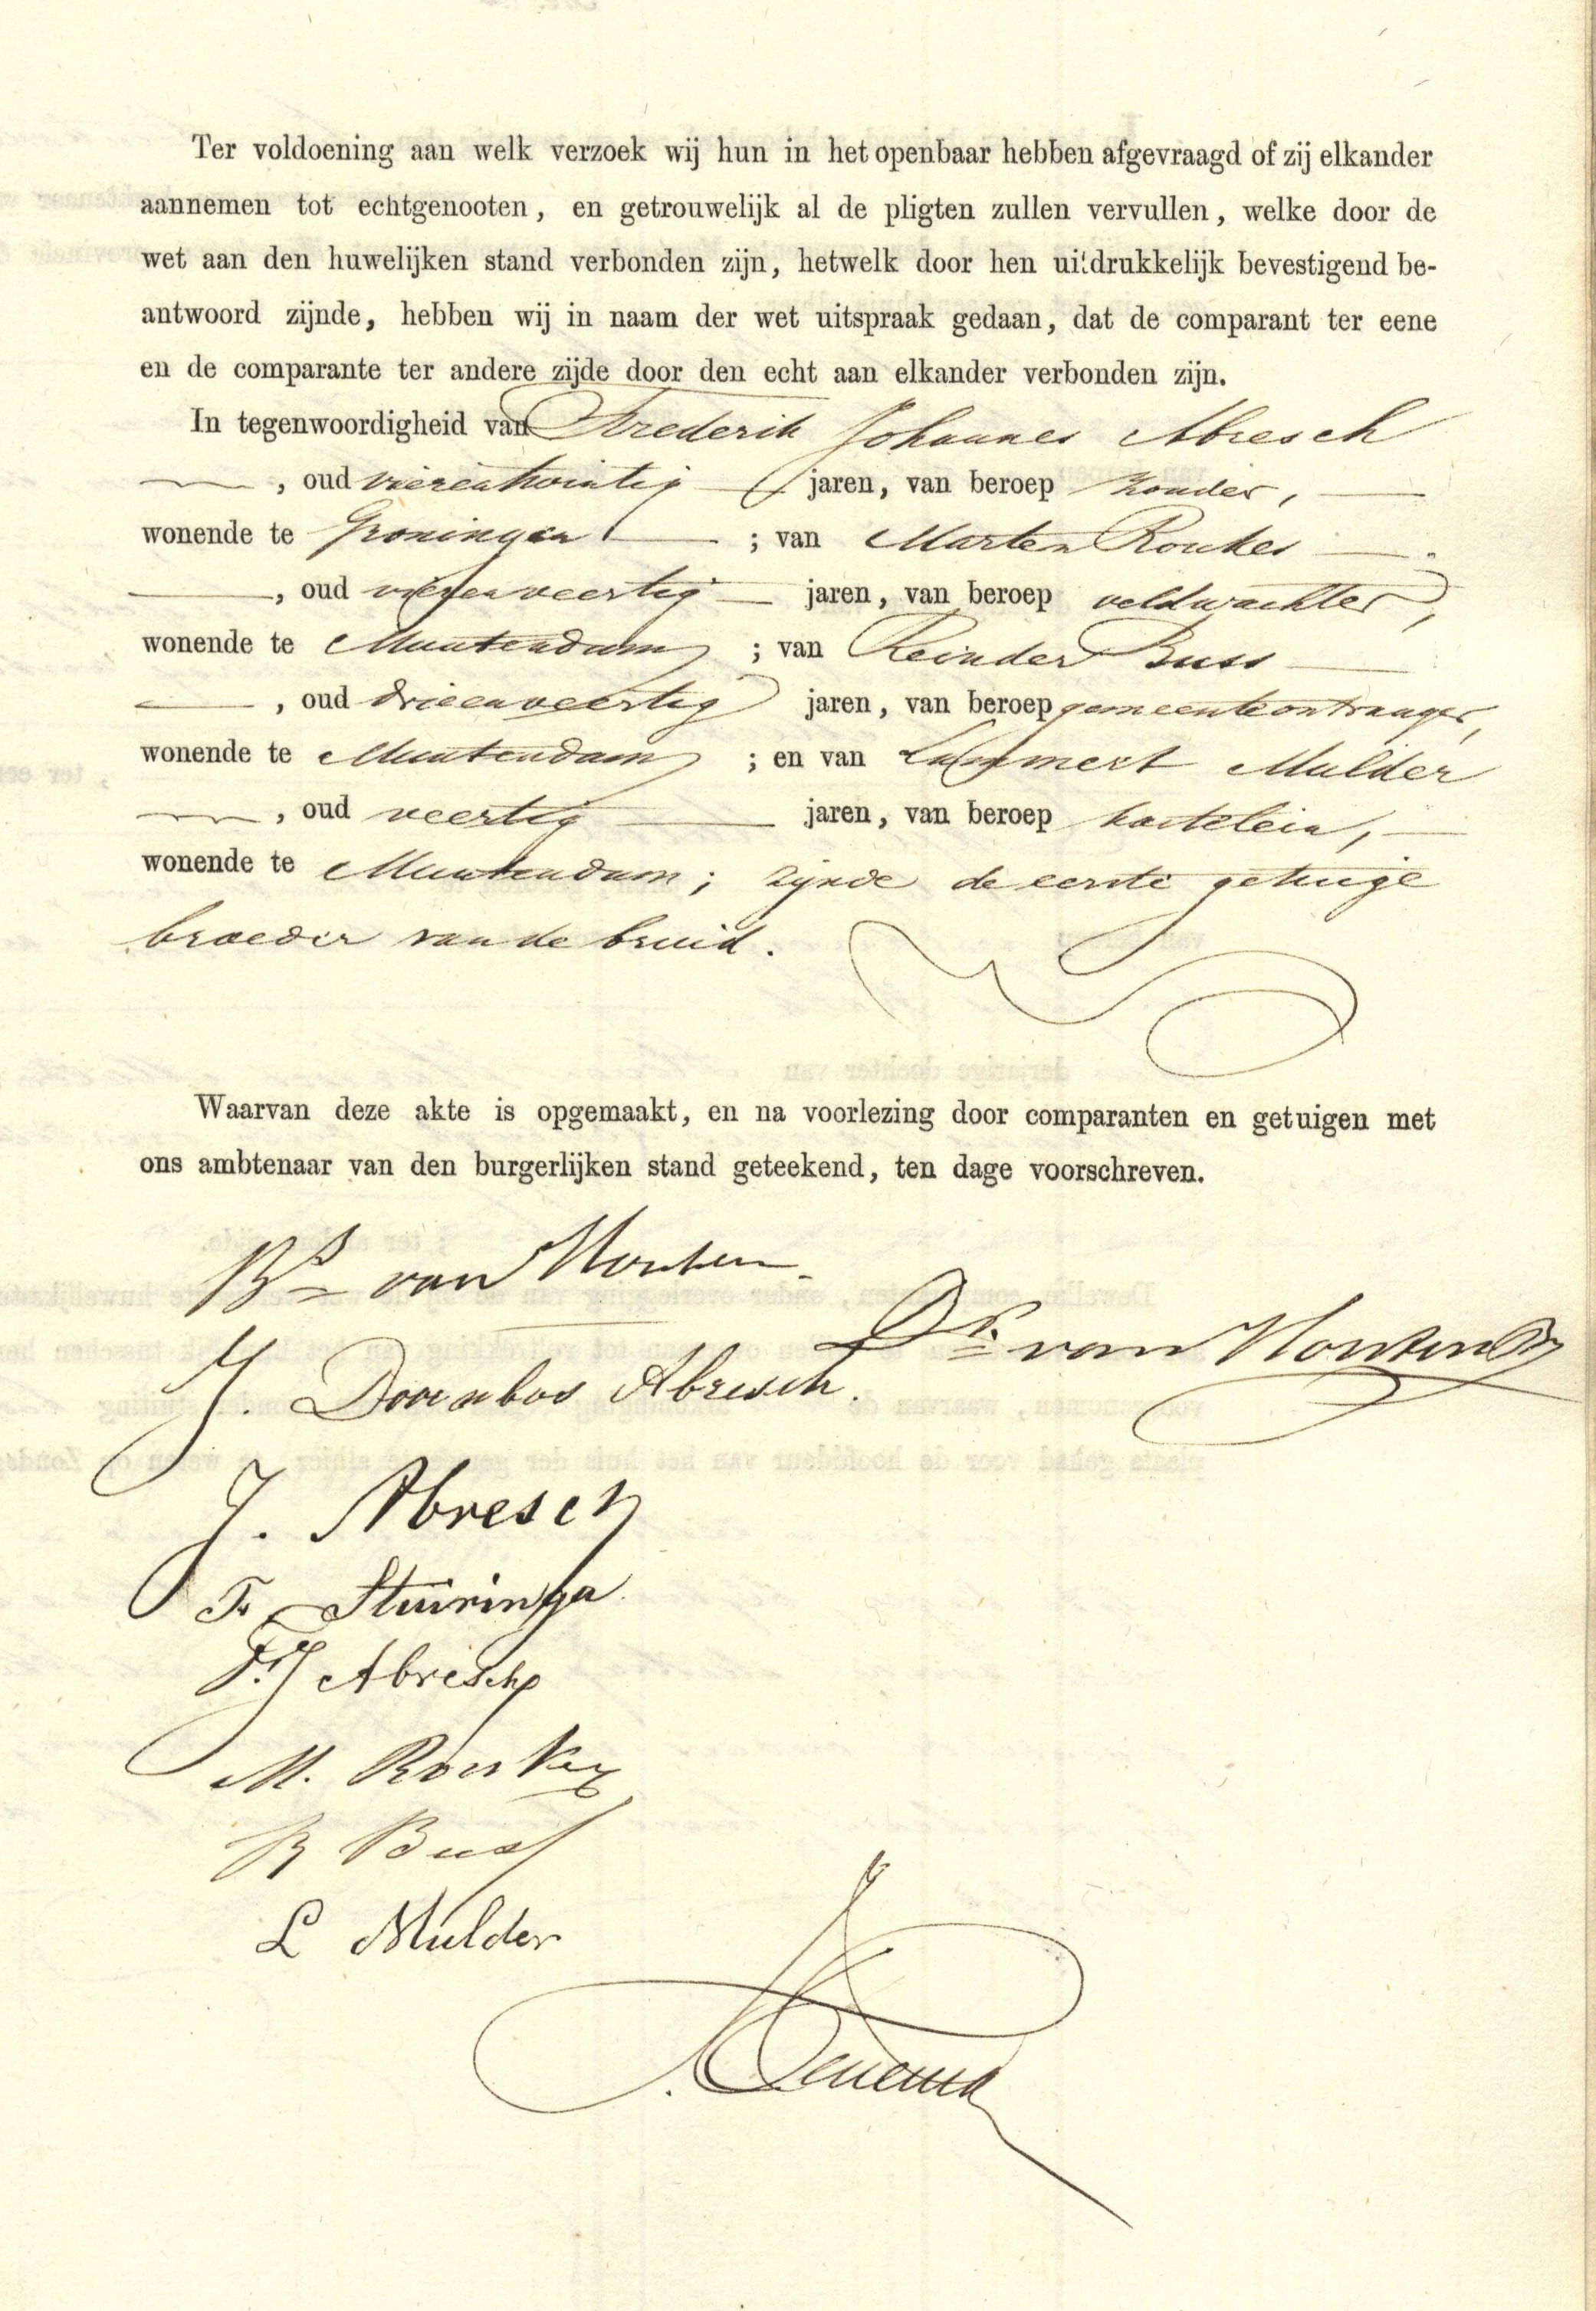 Ter voldoening aan welk verzoek wij hun in het openbaar hebben afgevraagd of zij elkander
aannemen tot echtgenooten, en getrouwelijk al de pligten zullen vervullen, welke door de
wet aan den huwelijken stand verbonden zijn, hetwelk door hen uitdrukkelijk bevestigend be-
antwoord zijnde, hebben wij in naam der wet uitspraak gedaan, dat de comparant ter eene
en de comparante ter andere zijde door den echt aan elkander verbonden zijn.
In tegenwoordigheid van Frederik Johannes Abresch
, oud vierentwintig jaren, van beroep zonder,
wonende te Groningen ; van Marten Roukes
, oud vierenveertig jaren, van beroep veldwachter,
wonende te Muntendam ; van Reinder Buss
, oud drieenveertig jaren, van beroep gemeenteontvanger,
wonende te Muntendam ; en van Lammert Mulder
, oud veertig jaren, van beroep kastelein,
wonende te Muntendam; zijnde de eerste getuige
broeder van de bruid.
Waarvan deze akte is opgemaakt, en na voorlezing door comparanten en getuigen met
ons ambtenaar van den burgerlijken stand geteekend, ten dage voorschreven.
van Houten
Dk. van Houten
J. Doornbos Abresch.
J. Abresch
F. Stuiringa
F.J Abresch
M. Roukes
R Buss
L Mulder
Venema